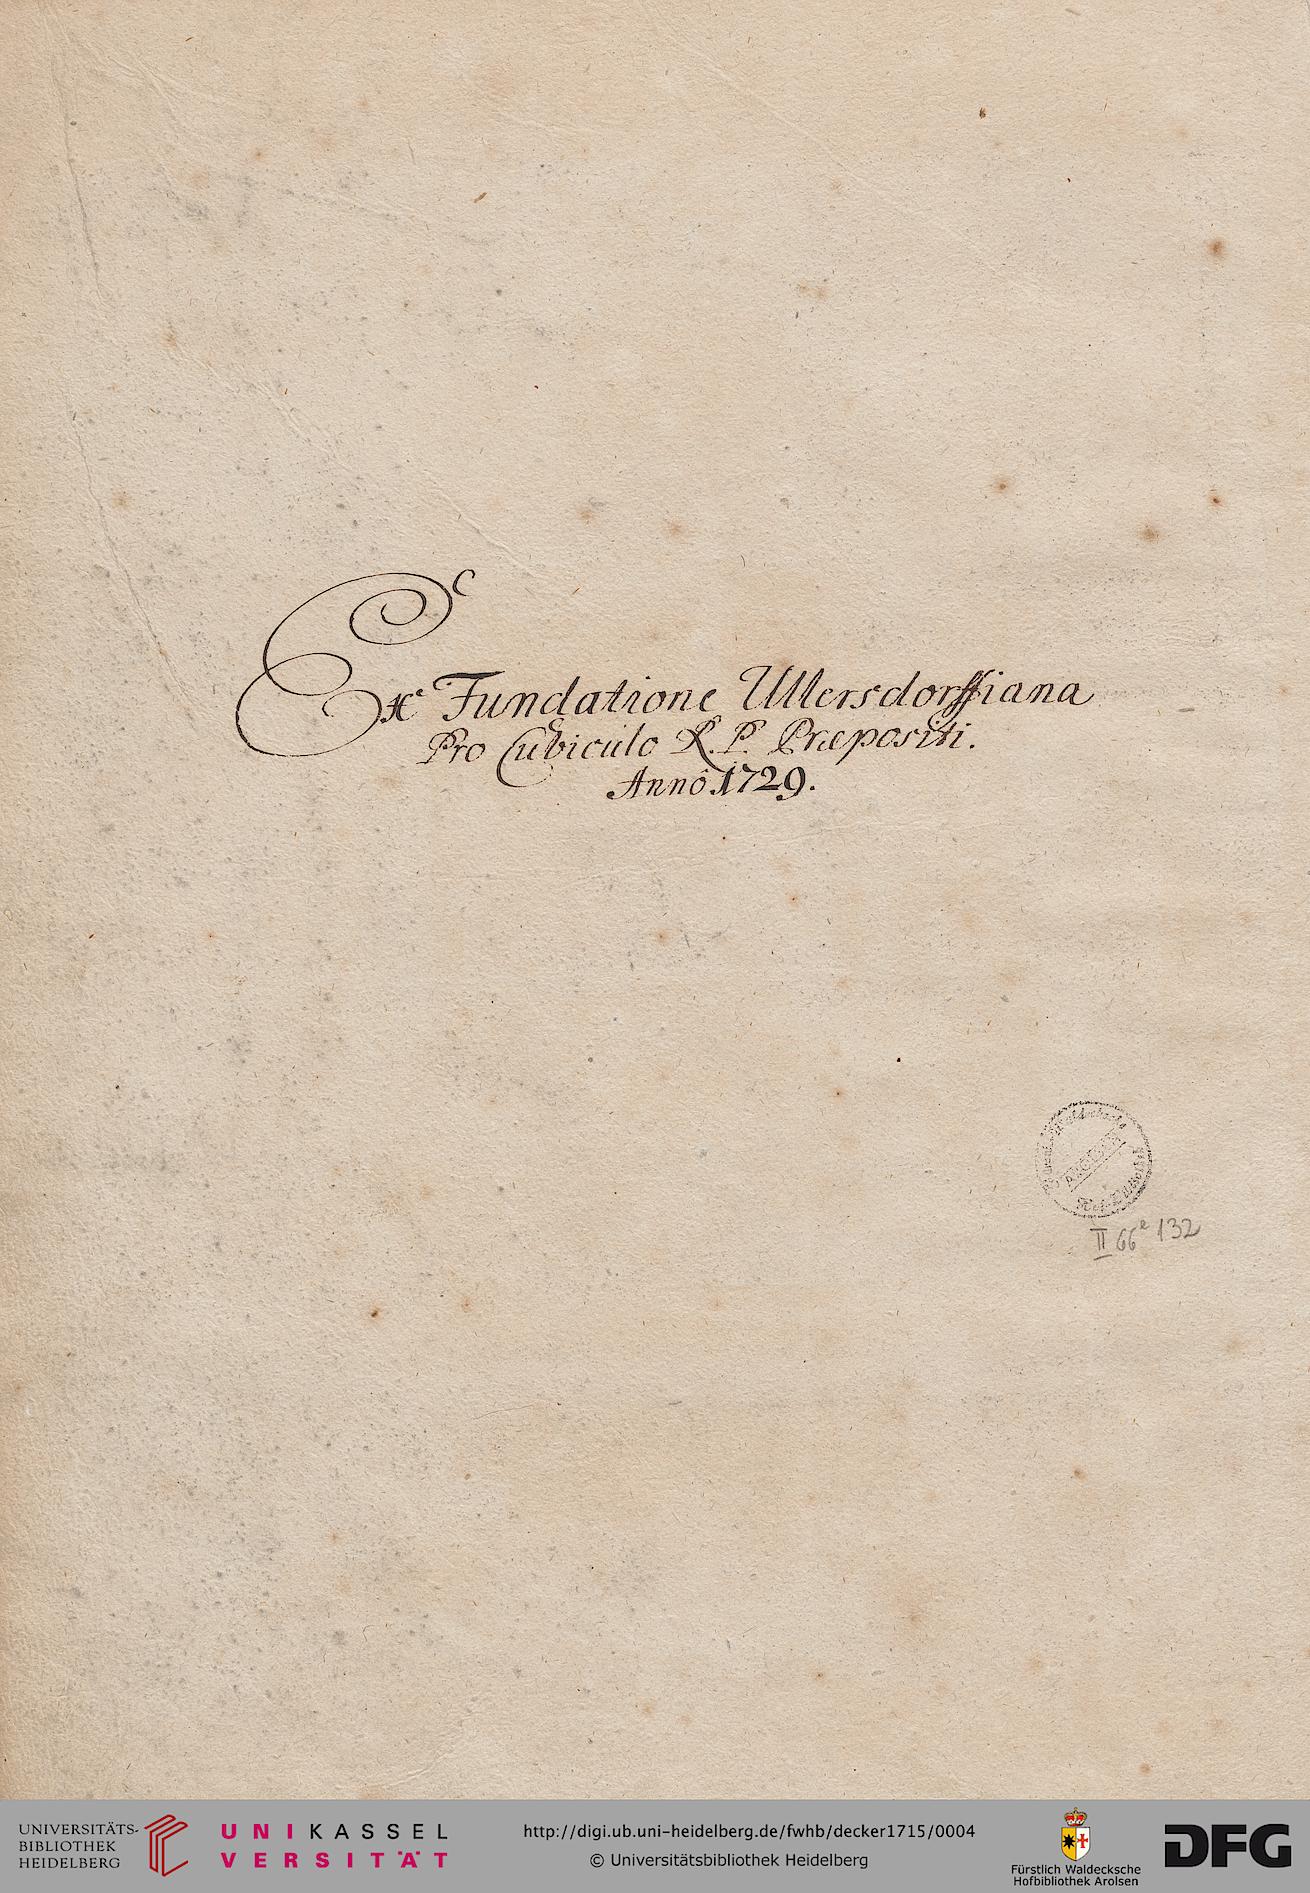 Ex Fundatione Ullersdorffiana
Pro Cubiculo R. P. Præpositi.
Annô 1729.
Waldecksche
AROLSEN
Hof-Bibliothek
II 66e 132
UNIVERSITÄTS-
BIBLIOTHEK
HEIDELBERG
UNIKASSEL
VERSITÄT
http://digi.ub.uni-heidelberg.de/fwhb/decker1715/0004
© Universitätsbibliothek Heidelberg
Fürstlich Waldecksche
Hofbibliothek Arolsen
DFG